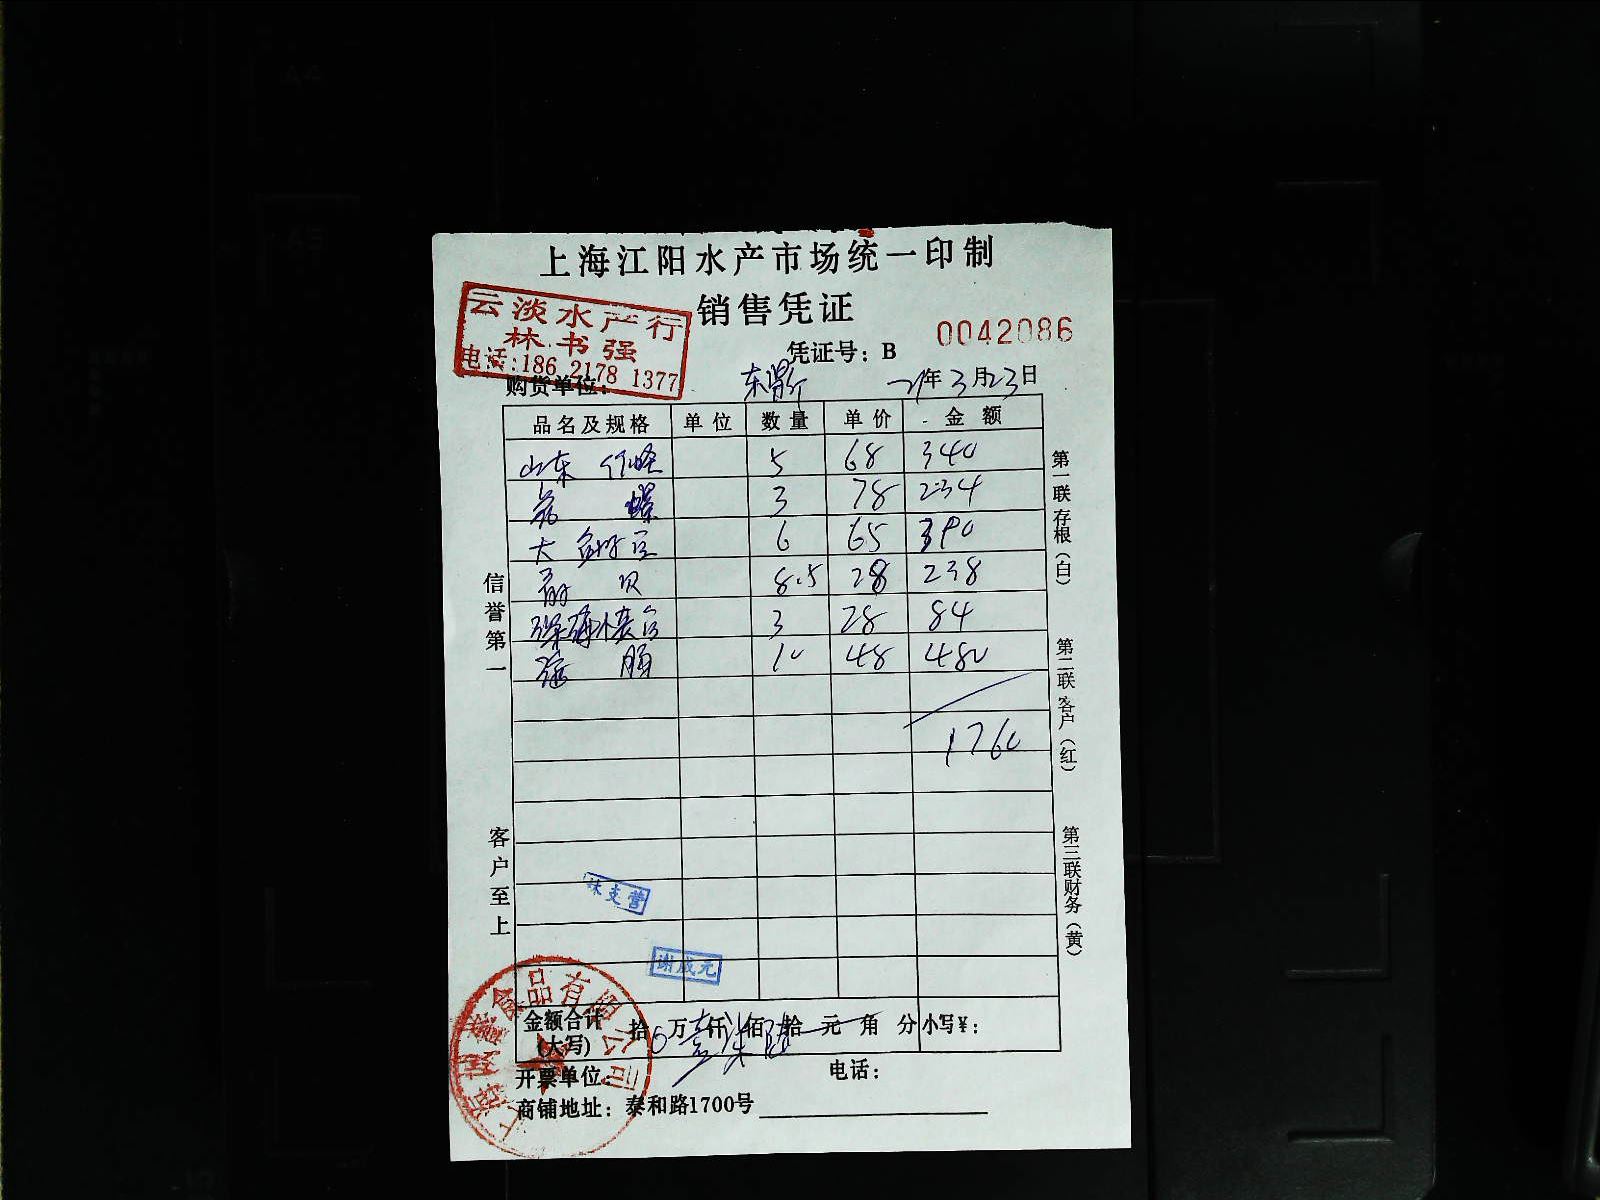 上海江阳水产市场统一印制
销售凭证
云淡水产行
林书强
电话:186 2178 1377
0042086
凭证号: B
购货单位:
21年3月23日
品名及规格 单位 数量 单价 金额
山东 竹蛏 5 68 340
花 螺 3 78 234
大 6 65 390
贝 8.5 28 238
3 28 84
10 48 480
1760
信誉第一
客户至上
第一联存根(白)
第二联客户(红)
第三联财务(黄)
谢成元
金额合计(大写) 拾0万壹仟柒佰陆拾元角分 小写¥:
开票单位: 电话:
商铺地址: 泰和路1700号